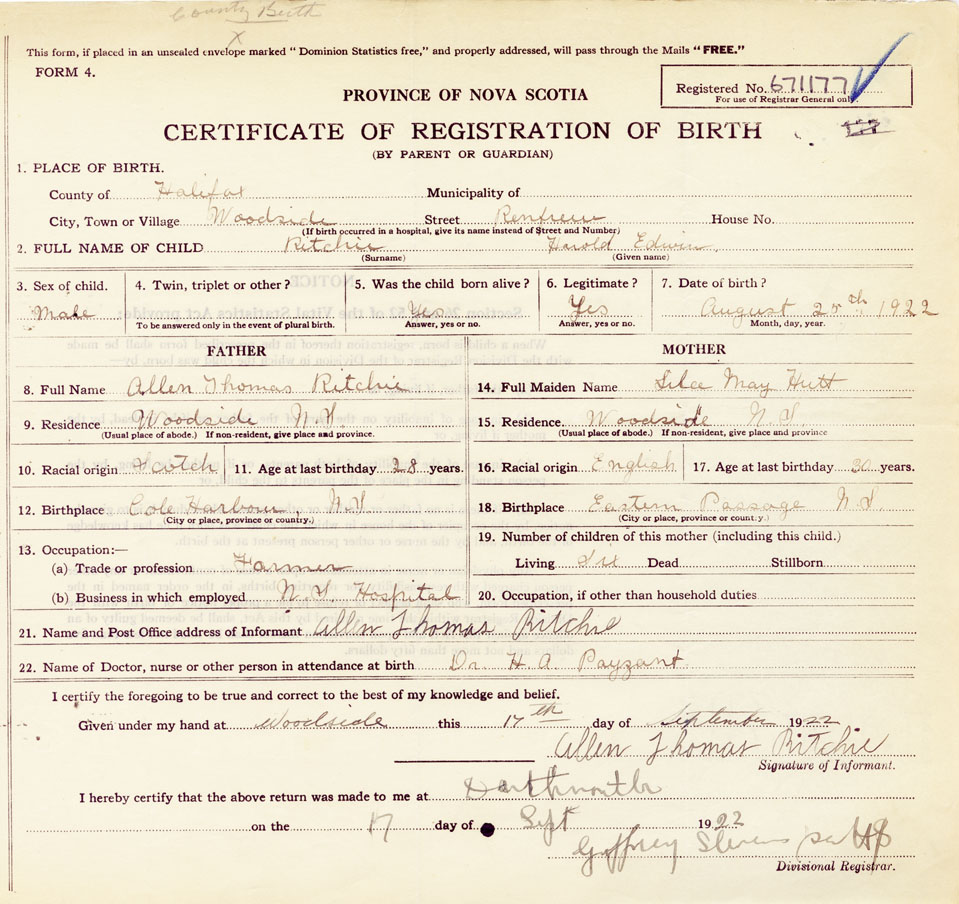 County Birth
X
This form, if placed in an unsealed envelope marked "Dominion Statistics free," and properly addressed, will pass through the Mails "FREE."
FORM 4.
Registered No. 671177
For use of Registrar General only
PROVINCE OF NOVA SCOTIA
CERTIFICATE OF REGISTRATION OF BIRTH
(BY PARENT OR GUARDIAN)
1. PLACE OF BIRTH.
County of Halifax Municipality of
City, Town or Village Woodside Street Renfrew House No.
(If birth occurred in a hospital, give its name instead of Street and Number)
2. FULL NAME OF CHILD Ritchie Harold Edwin
(Surname) (Given name)
3. Sex of child. 4. Twin, triplet or other? 5. Was the child born alive? 6. Legitimate? 7. Date of birth?
Male Yes Yes August 25th 1922
To be answered only in the event of plural birth. Answer, yes or no. Answer, yes or no. Month, day, year.
FATHER MOTHER
8. Full Name Allen Thomas Ritchie 14. Full Maiden Name May Hutt
9. Residence Woodside N.S. 15. Residence. Woodside N S
(Usual place of abode.) If non-resident, give place and province. (Usual place of abode.) If non-resident, give place and province
10. Racial origin Scotch 11. Age at last birthday 28 years. 16. Racial origin English 17. Age at last birthday 30 years.
12. Birthplace Cole Harbour, N.S 18. Birthplace Eastern Passage N S
(City or place, province or country.) (City or place, province or country.)
13. Occupation:— 19. Number of children of this mother (including this child.)
(a) Trade or profession Farmer Living Dead Stillborn
(b) Business in which employed N.S. Hospital 20. Occupation, if other than household duties
21. Name and Post Office address of Informant Allen Thomas Ritchie
22. Name of Doctor, nurse or other person in attendance at birth Dr. H. A. Payzant.
I certify the foregoing to be true and correct to the best of my knowledge and belief.
Given under my hand at Woodside this 17th day of September 1922
Allen Thomas Ritchie
Signature of Informant.
I hereby certify that the above return was made to me at Dartmouth
on the 17 day of Sept 1922
Divisional Registrar.